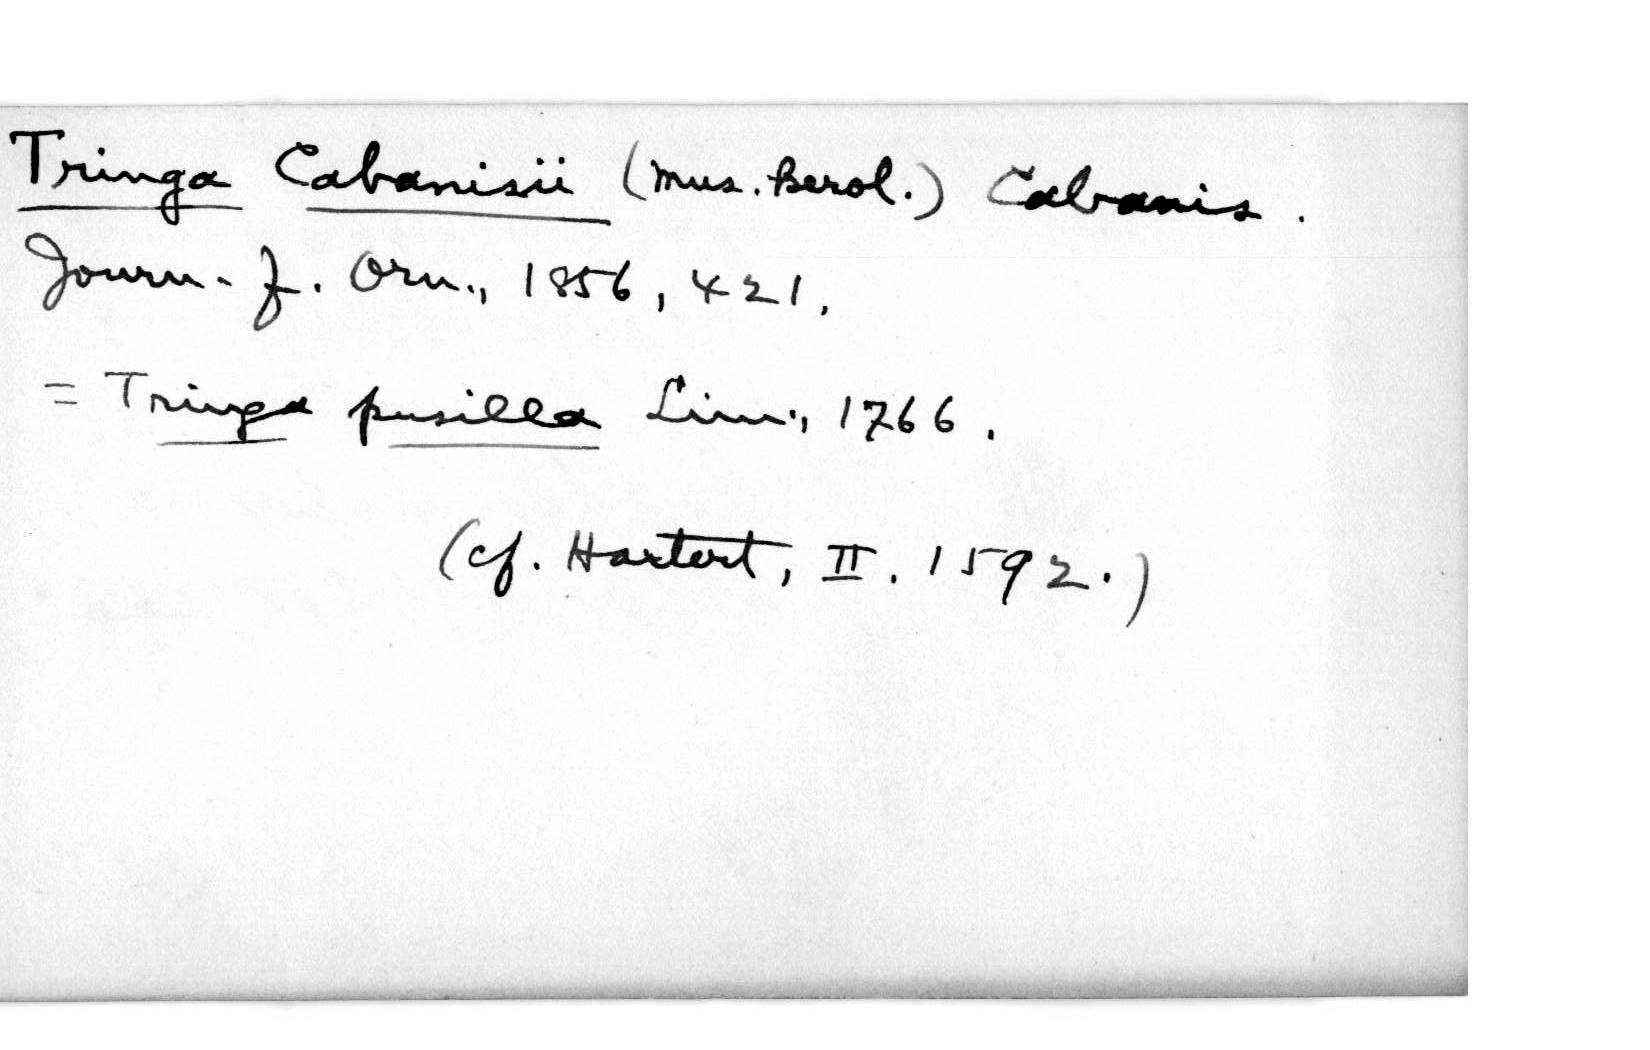 Tringa Cabanisii (Mus. Berol.) Cabanis.
Journ. f. Orn., 1856, 421,
= Tringa pusilla Linn., 1766.
(cf. Hartert, II. 1592.)